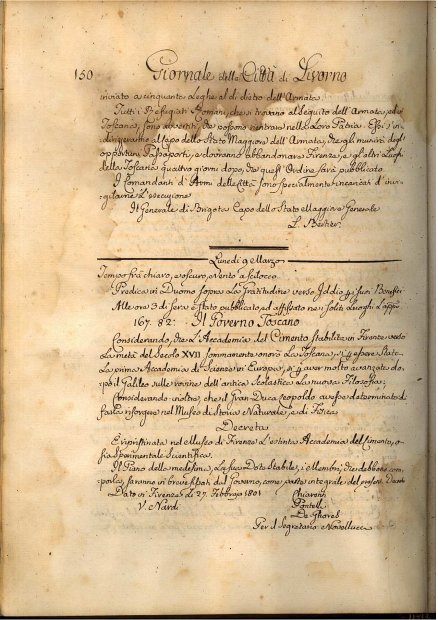 150 Giornale della Città di Livorno
inviato a cinquanta Leghe al di dietro dell'Armata.
Tutti i Refugiati Romani, che si trovano al seguito dell'Armata, ed in
Toscana, sono avvertiti, che possono rientrare nella Loro Patria. Essi s'in-
dirizzeranno al Capo dello Stato Maggiore dell'Armata, che gli munirà degli
opportuni Passaporti, e dovranno abbandonare Firenze, e gli altri Luoghi
della Toscana quattro giorni dopo, che quest'Ordine sarà pubblicato.
I Comandanti d'Armi delle Città sono specialmente incaricati d'invi-
gilarne l'esecuzione
Il Generale di Brigata Capo dello Stato Maggiore Generale
L. Berthier.
Lunedì 9 Marzo
Tempo frà chiaro, e oscuro, e vento a scilocco
Predica in Duomo sopra La Gratitudine verso Iddio, p i suoi Benefizi
Alle ore 3 di sera è stato pubblicato ed affissato ne' soliti Luoghi
167. 82. Il Governo Toscano
Considerando, che L'Accademia del Cimento Stabilita in Firenze verso
La metà del Secolo XVII sommamente onorò La Toscana, p essere stata
La prima Accademia di Scienze in Europa, e p aver molto avanzata do-
po il Galileo sulle rovine dell'antica Scolastica La nuova Filosofia;
Considerando inoltre, che il Gran Duca Leopoldo aveva determinato di
farla risorgere nel Museo di Storia Naturale, e di Fisica
Decreta
È ripristinata nel Museo di Firenze L'estinta Accademia del Cimento, o
sia Sperimentale Scientifica.
Il Piano della medesima, La sua Dote Stabile, i Membri, che debbono com-
porla, saranno in breve fissati dal Governo, come parte integrale del presente
Dato in Firenze li 27. Febbrajo 1801.
Chiarenti
V. Nardi
Pontelli
De Ghores
Per il Segretario Novellucci